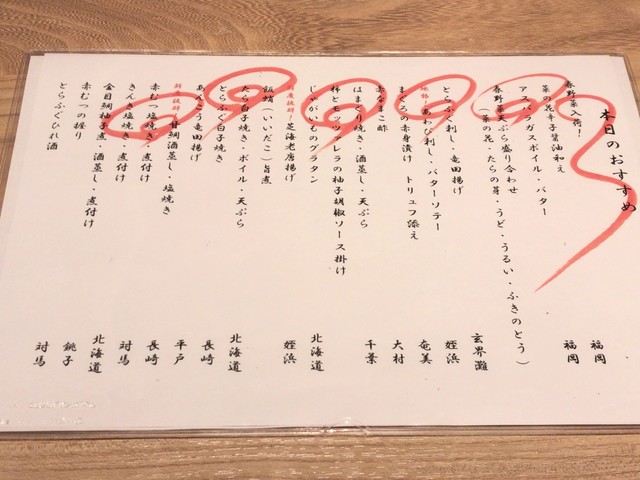 本日のおすすめ
春野菜入荷！
菜の花辛子醤油和え 福岡
アスパラガスボイル・バター 福岡
春野菜天ぷら盛り合わせ
（菜の花・たらの芽・うど・うるい・ふきのとう）
とらふぐ刺し・竜田揚げ 玄界灘
あわび刺し・バターソテー 姪浜
まぐろの赤身漬け トリュフ添え 奄美
赤なまこ酢 大村
はまぐり焼き・酒蒸し・天ぷら 千葉
柿とモッツァレラの柚子胡椒ソース掛け
じゃがいものグラタン 北海道
鮮度抜群！芝海老唐揚げ 姪浜
飯蛸（いいだこ）旨煮
たら白子焼き・ボイル・天ぷら 北海道
とらふぐ白子焼き 長崎
あんこう竜田揚げ 平戸
鮮度抜群！甘鯛酒蒸し・塩焼き 長崎
赤むつ塩焼き・煮付け 対馬
きんき塩焼き・煮付け 北海道
金目鯛柚子煮・酒蒸し・煮付け 銚子
赤むつの握り 対馬
とらふぐひれ酒